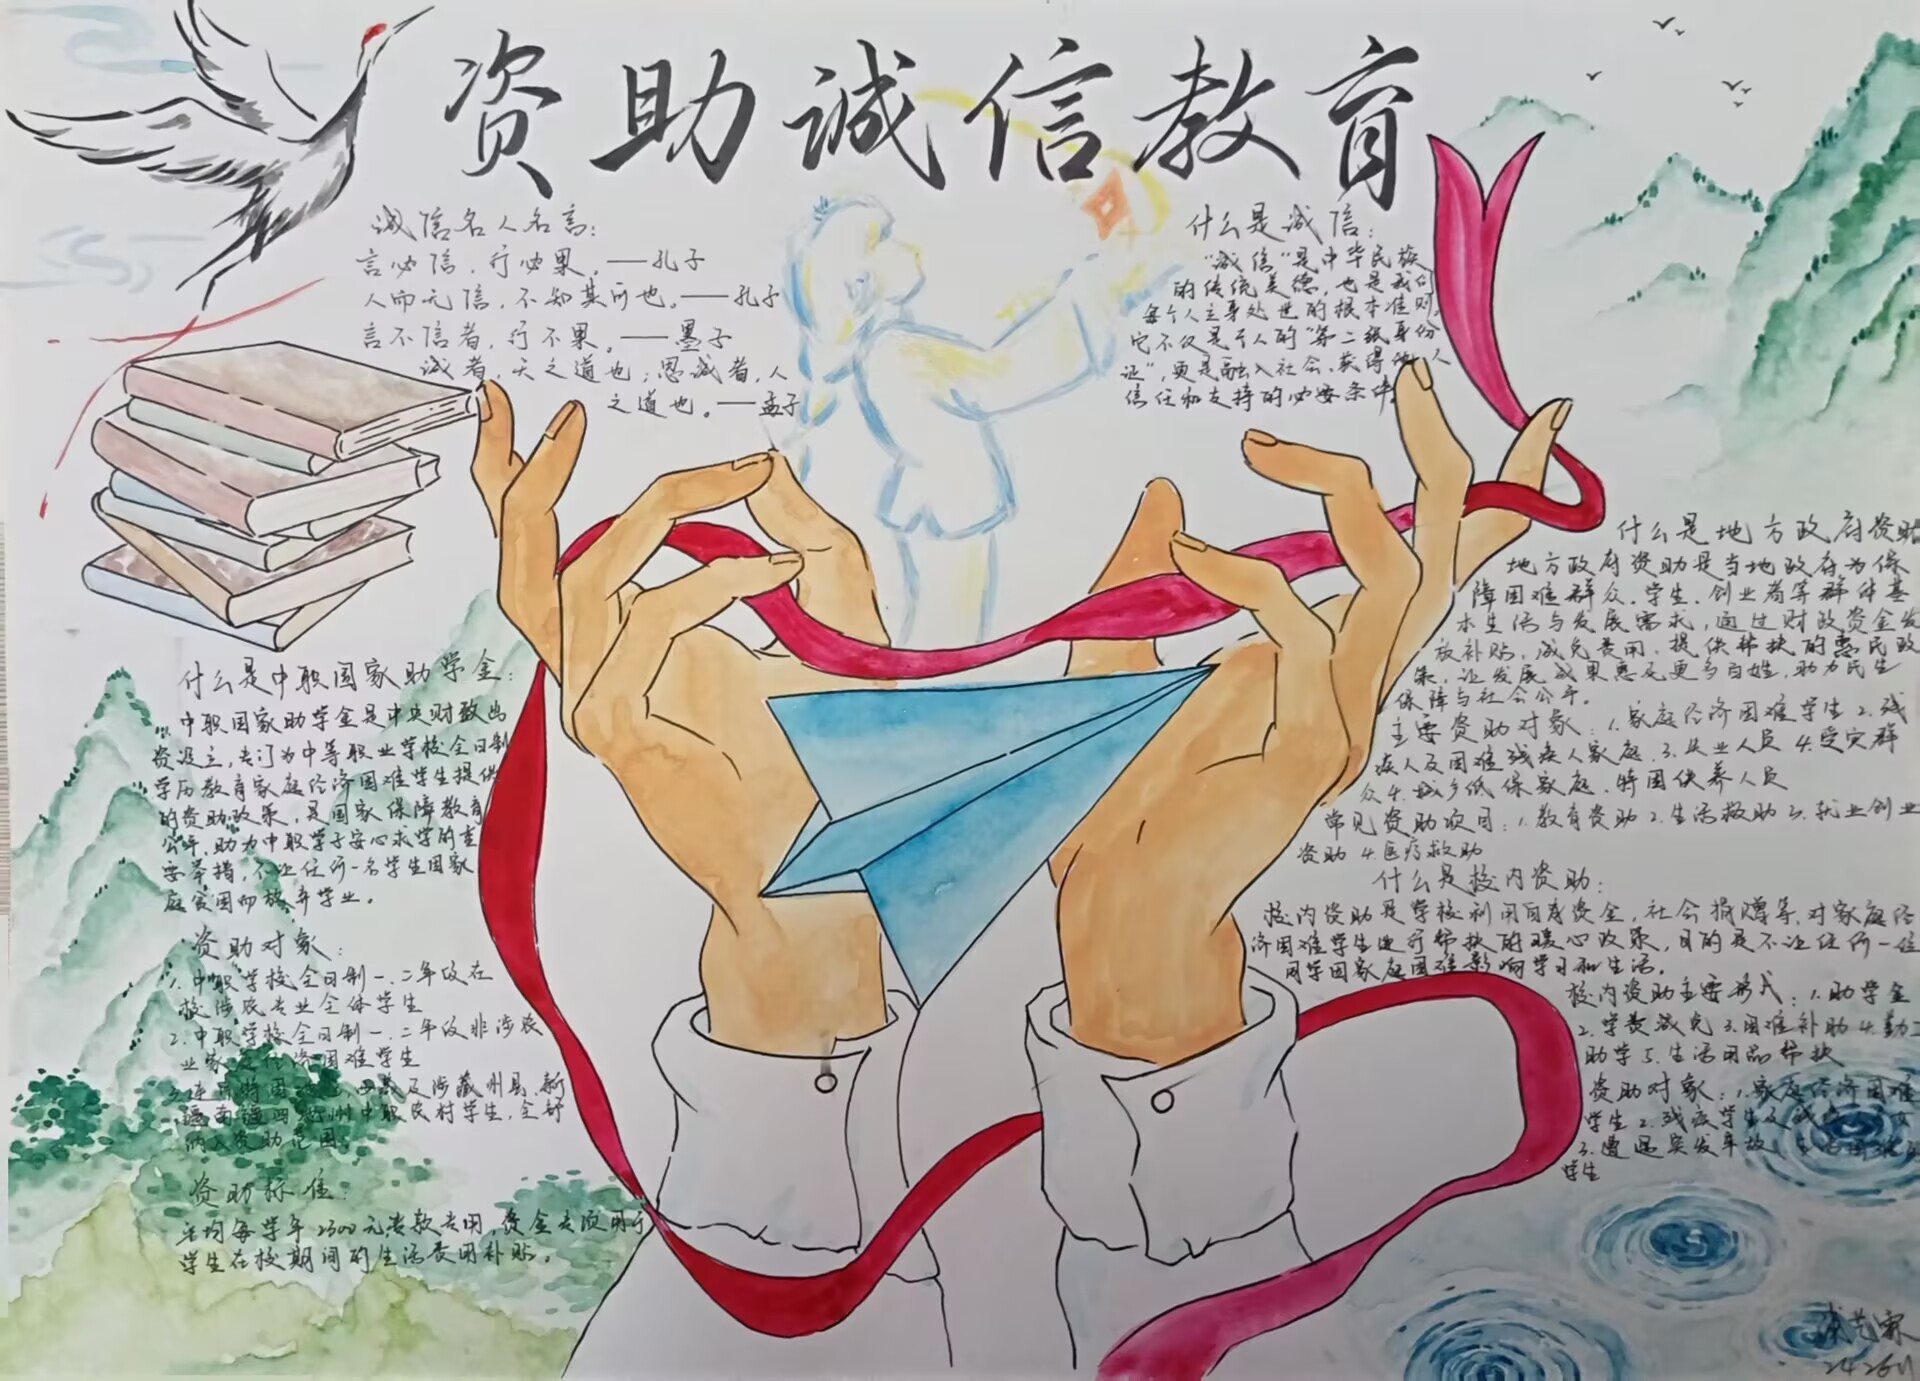 资助诚信教育
诚信名人名言:
言必信，行必果。——孔子
人而无信，不知其可也。——孔子
言不信者，行不果。——墨子
诚者，天之道也；思诚者，人
之道也。——孟子
什么是诚信:
"诚信"是中华民族
的传统美德，也是我们
每个人立身处世的根本准则。
它不仅是个人的"第二张身份
证"，更是融入社会、获得他人
信任和支持的必要条件。
什么是中职国家助学金:
中职国家助学金是中央财政出
资设立，专门为中等职业学校全日制
学历教育家庭经济困难学生提供
的资助政策，是国家保障教育
公平，助力中职学子安心求学的重
要举措，不让任何一名学生因家
庭贫困而放弃学业。
资助对象:
1.中职学校全日制一、二年级在
校涉农专业全体学生
2.中职学校全日制一、二年级非涉农
业家庭经济困难学生
3.连片特困 及涉藏州县、新
疆南疆四地州中职农村学生，全部
纳入资助范围
资助标准:
平均每学年2300元专款专用，资金专项用于
学生在校期间的生活费用补贴。
什么是地方政府资助
地方政府资助是当地政府为保
障困难群众、学生、创业者等群体基
本生活与发展需求，通过财政资金发
放补贴、减免费用、提供帮扶的惠民政
策，让发展成果惠及更多百姓，助力民生
保障与社会公平。
主要资助对象：1.家庭经济困难学生 2.残
疾人及困难残疾人家庭 3.从业人员 4.受灾群
众 4.城乡低保家庭、特困供养人员
常见资助项目：1.教育资助 2.生活救助 3.就业创业
资助 4.医疗救助
什么是校内资助:
校内资助是学校利用自有资金，社会捐赠等，对家庭经
济困难学生进行帮扶的暖心政策，目的是不让任何一位
同学因家庭困难影响学习和生活。
校内资助主要形式：1.助学金
2.学费减免 3.困难补助 4.勤工
助学 5.生活用品帮扶
资助对象：1.家庭经济困难
学生 2.残疾学生及残疾 子女
3.遭遇突发事故
学生